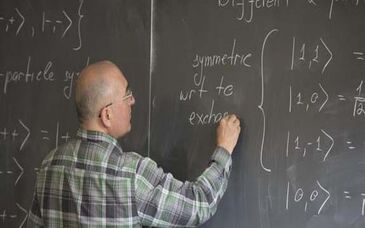 Different
|-, -⟩ }
-particle sy
symmetric
wrt to
exchan
|1, 1⟩ =
|1, 0⟩ = 1
|1, -1⟩ =
|0, 0⟩ =
+⟩
+⟩